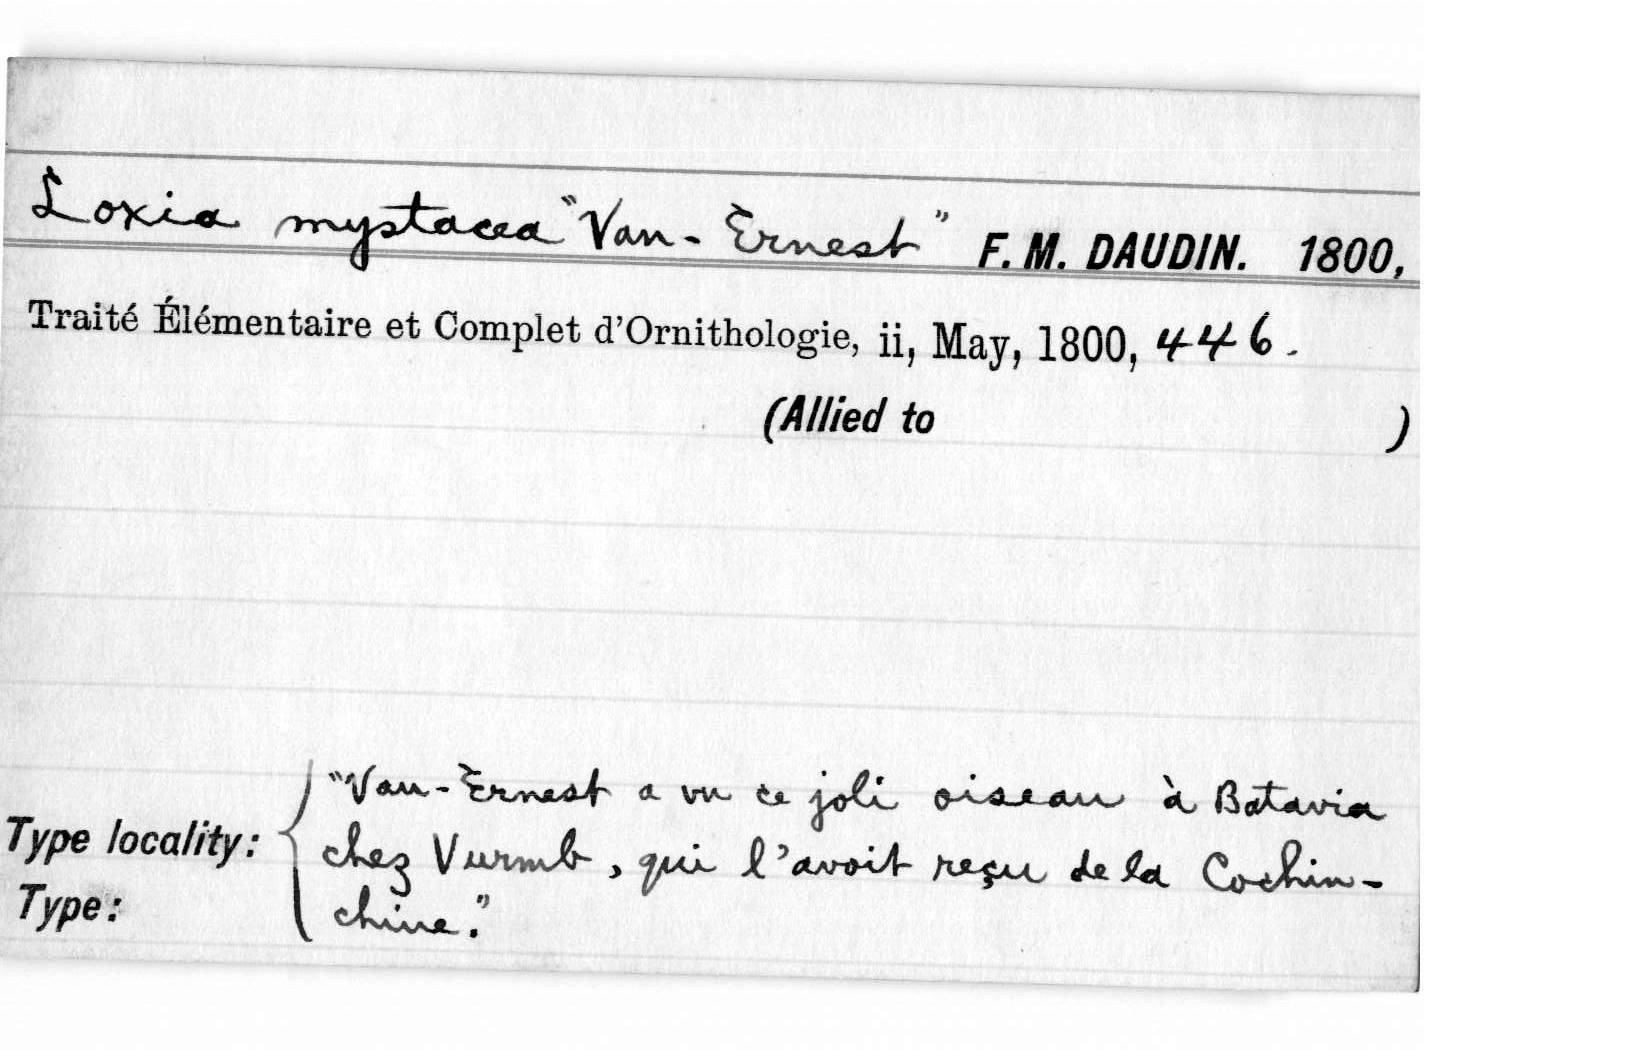 Loxia mystacea "Van-Ernest" F. M. DAUDIN. 1800,
Traité Élémentaire et Complet d'Ornithologie, ii, May, 1800, 446.
(Allied to )
"Van-Ernest a vu ce joli oiseau à Batavia
Type locality: chez Vurmb, qui l'avoit reçu de la Cochin-
Type: chine."